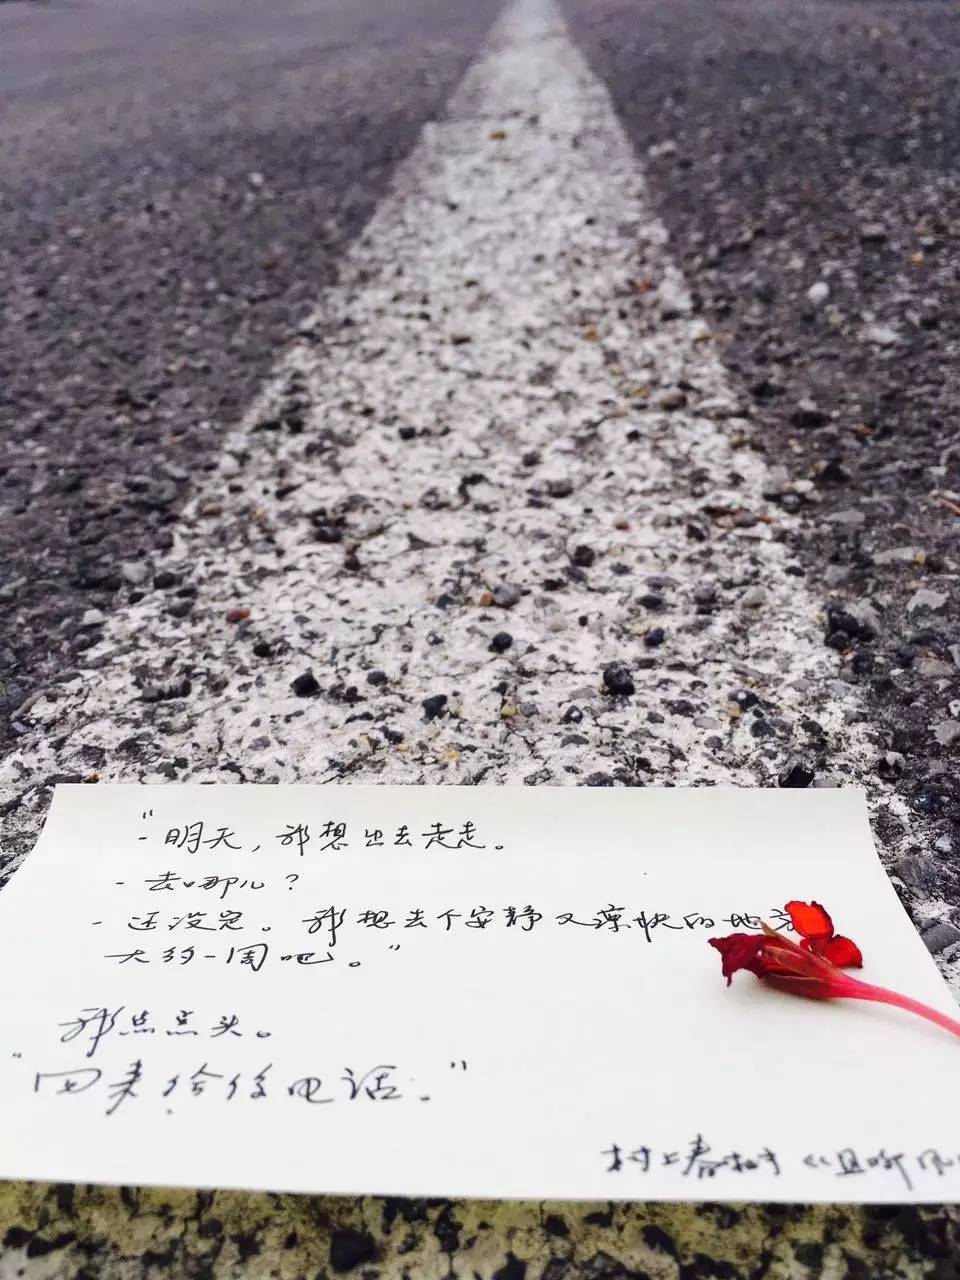 “- 明天，我想出去走走。
- 去哪儿？
- 还没定。我想去个安静又凉快的地方
大约一周吧。”
我点点头。
“回来给你电话。”
村上春树《且听风